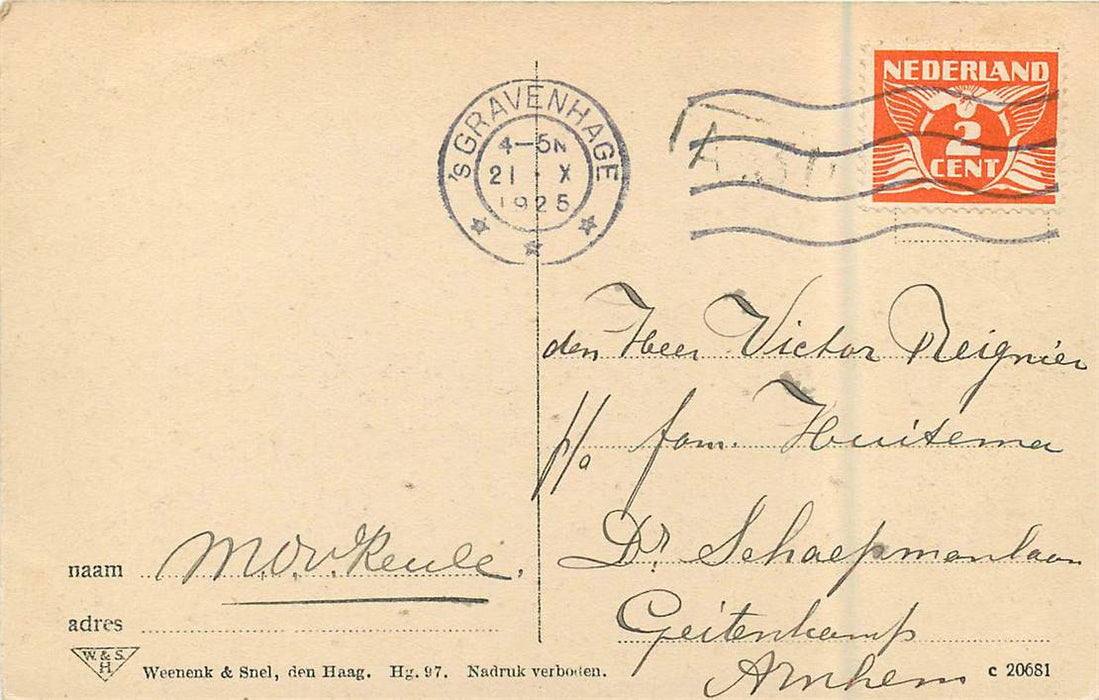 'sGRAVENHAGE
4-5N
21 · X
1925
NEDERLAND
2
CENT
den Heer Victor Reignier
p/a fam. Huitema
Dr. Schaepmanlaan
Geitenkamp
Arnhem
naam
adres
W. & S.
H
Weenenk & Snel, den Haag. Hg. 97. Nadruk verboden.
c 20681